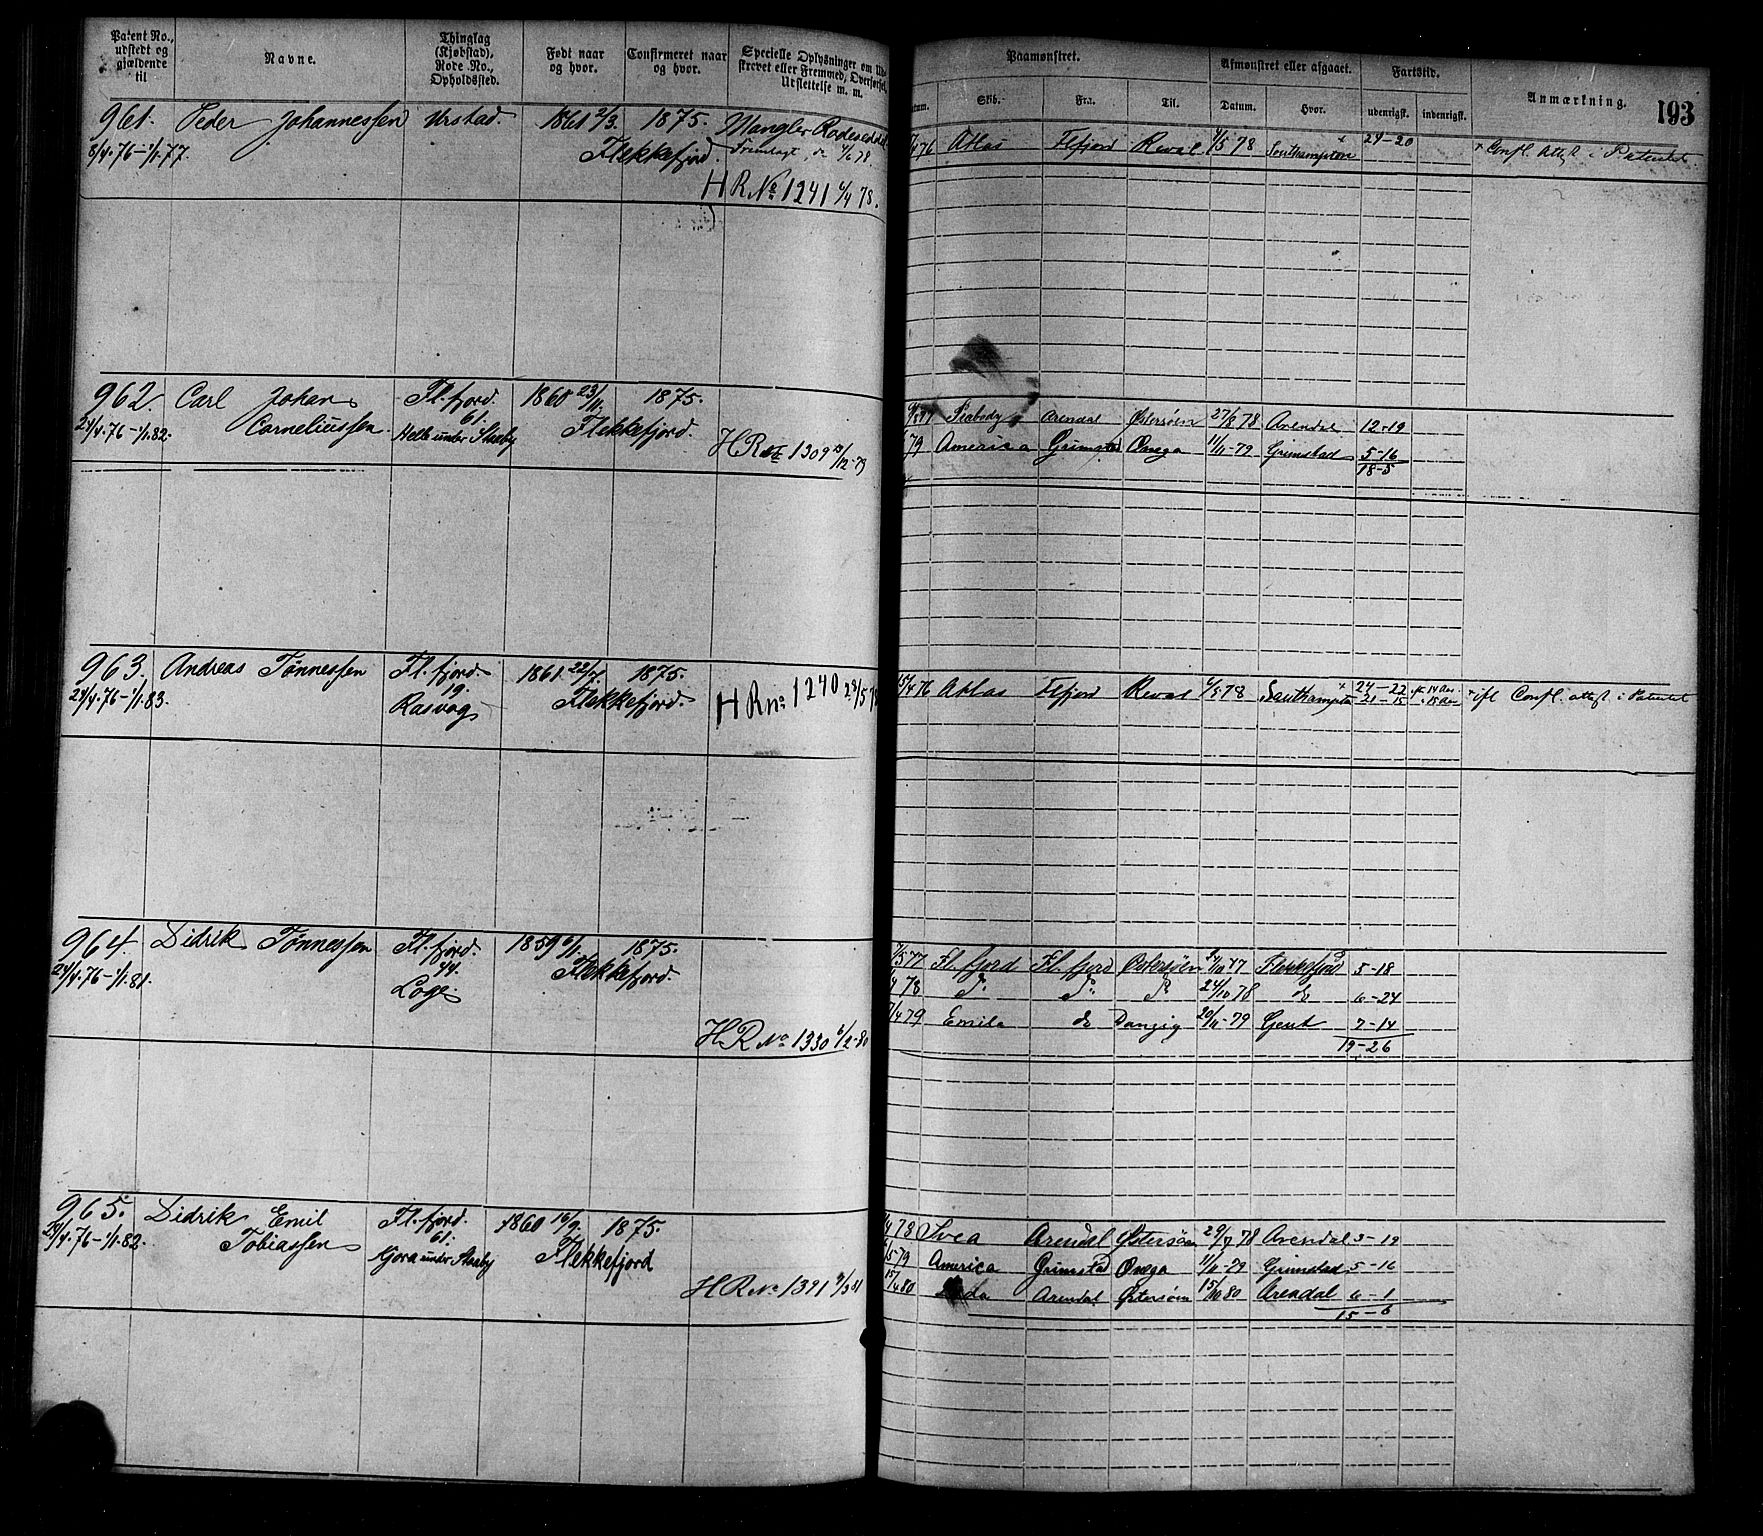 Patent No., udstedt og gjældende til
Navne.
Thinglag (Kjøbstad), Rode No., Opholdssted.
Født naar og hvor.
Confirmeret naar og hvor.
Specielle Oplysninger om Ud-
skrevet eller Fremmed, Overførsel,
Udslettelse m. m.
Paamønstret.
Afmønstret eller afgaaet.
Fartstid.
Anmærkning.
193
Skib.
Fra.
Til.
Datum.
Hvor.
udenrigsk.
indenrigsk.
961. Peder Johannessen Urstad. 1861 2/3. 1875. Mangler Rodeseddel
8/4.76-1/1.77. Flekkefjord. Fremlagt
HR No 1241 4/4 78.
76 Atlas Flfjord Reval 4/5 78 Southampton 24-20 × Confl. Attest i Patentet
962. Carl Johan Fl.fjord. 1860 23/11. 1875.
24/4.76-1/1.82. Corneliussen. 61. Helle under Stenby Flekkefjord.
HR No 1309 /12-79
77 Peabody Arendal Østersøen 27/8 78 Arendal 12-19
79 America Grimstad Onega 11/11-79 Grimstad 5-16
18-5
963. Andreas Tønnessen Fl.fjord. 1861 22/7. 1875.
24/4.76-1/1.83. 19. Rasvog Flekkefjord.
HR no 1240 29/5 78
15/4 76 Atlas Flfjord Reval 4/5 78 Southampton 24-22
21-15
Confl. attest i Patentet
964. Didrik Tønnessen Fl.fjord. 1859 6/11. 1875.
24/4.76-1/1.81. 44. Loge. Flekkefjord.
HR No 1330 6/2-80
/5 77 Fl.fjord Fl.fjord Østersøen /10 77 Flekkefjord 5-18
78 Do Do Do 24/10 78 do 6-24
/4 79 Emile do Danzig 20/11-79 Gent 7-14
19-26
965. Didrik Emil Fl.fjord. 1860 16/9. 1875.
24/4.76-1/1.82. Tobiassen 61. Kjora under Stenby Flekkefjord
HR No 1391 9/3 81
/4 78 Svea Arendal Østersøen 29/9 78 Arendal 3-19
/5 79 America Grimstad Onega 11/11-79 Grimstad 5-16
15/4 80 Arendal Østersøen 15/10 80 Arendal 6-1
15-6